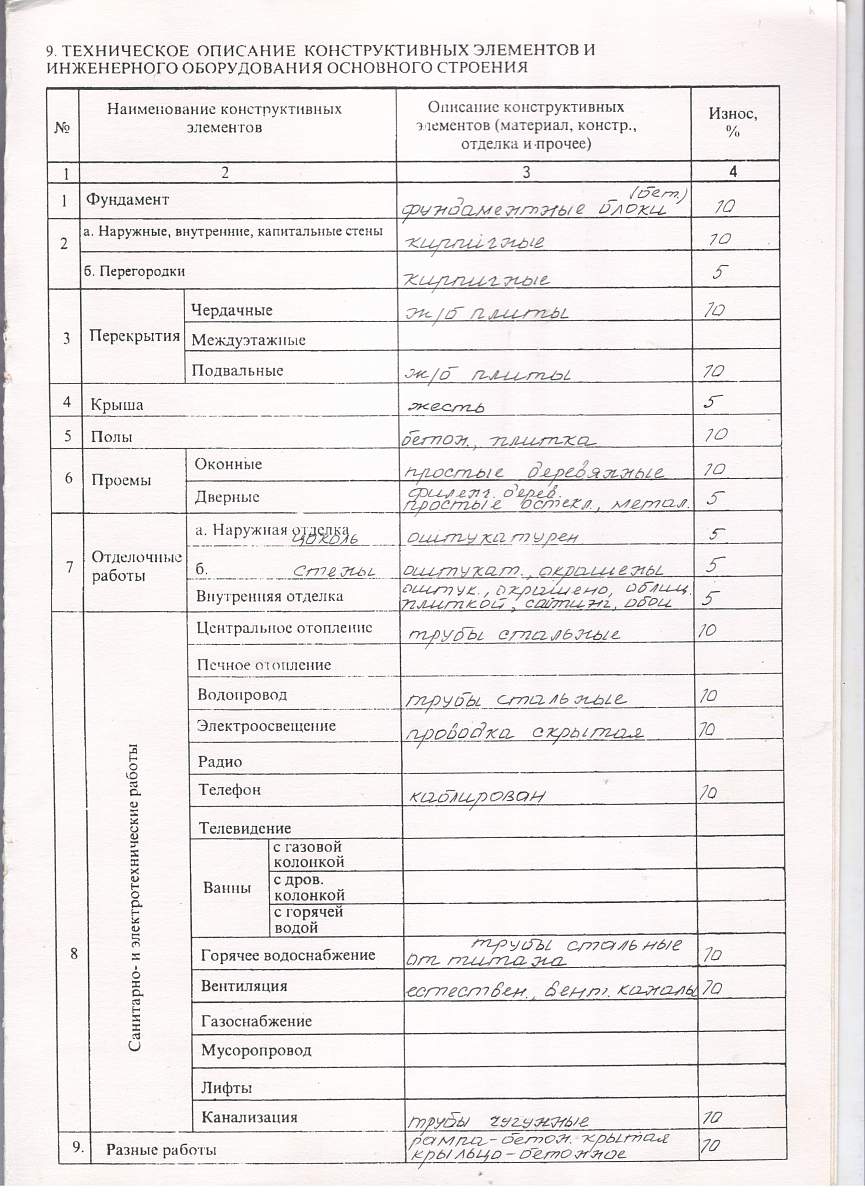 9. ТЕХНИЧЕСКОЕ ОПИСАНИЕ КОНСТРУКТИВНЫХ ЭЛЕМЕНТОВ И
ИНЖЕНЕРНОГО ОБОРУДОВАНИЯ ОСНОВНОГО СТРОЕНИЯ
№ Наименование конструктивных элементов Описание конструктивных элементов (материал, констр., отделка и прочее) Износ, %
1 2 3 4
1 Фундамент фундаментные блоки (бет.) 10
2 а. Наружные, внутренние, капитальные стены кирпичные 10
б. Перегородки кирпичные 5
3 Перекрытия Чердачные ж/б плиты 10
Междуэтажные
Подвальные ж/б плиты 10
4 Крыша жесть 5
5 Полы бетон, плитка 10
6 Проемы Оконные простые деревянные 10
Дверные филенг. дерев.
простые остекл., метал. 5
7 Отделочные работы а. Наружная отделка
цоколь оштукатурен 5
б. стены оштукат., окрашены 5
Внутренняя отделка оштук., окрашено, облиц.
плиткой, сатинг, обои 5
8 Санитарно- и электротехнические работы
Центральное отопление трубы стальные 10
Печное отопление
Водопровод трубы стальные 10
Электроосвещение проводка скрытая 10
Радио
Телефон каблирован 10
Телевидение
Ванны с газовой колонкой
с дров. колонкой
с горячей водой
Горячее водоснабжение трубы стальные
от титана 10
Вентиляция естествен., вент. каналы 10
Газоснабжение
Мусоропровод
Лифты
Канализация трубы чугунные 10
9. Разные работы рампа-бетон. крытая
крыльцо-бетонное 10